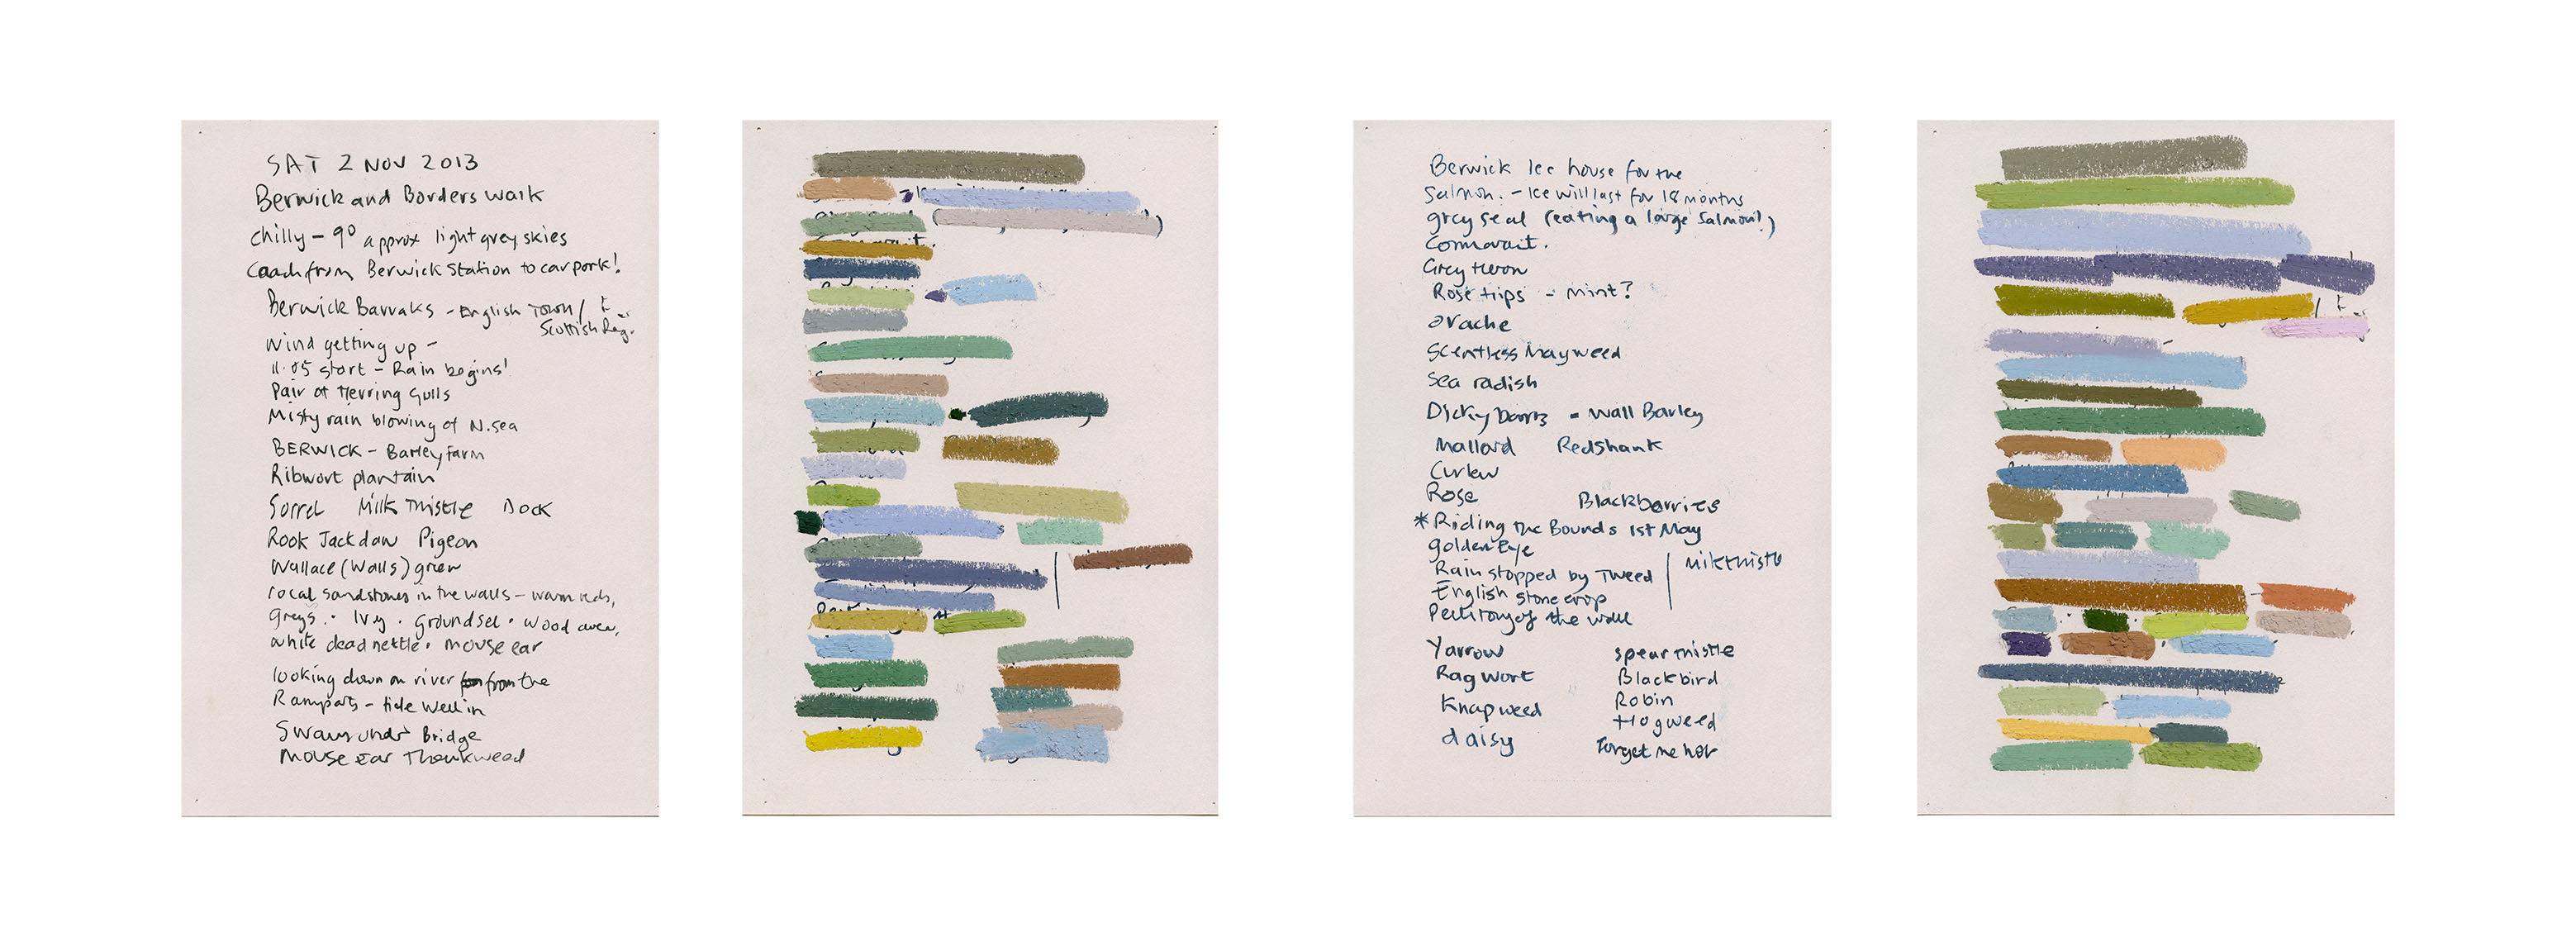 SAT 2 NOV 2013
Berwick and Borders walk
chilly – 9° approx light grey skies
Coach from Berwick Station to car park!
Berwick Barraks – English Town /
Scottish Reg.
Wind getting up –
11.05 start – Rain begins!
Pair of Herring Gulls
Misty rain blowing of N. sea
BERWICK – Barley farm
Ribwort plantain
Sorrel Milk Thistle Dock
Rook Jackdaw Pigeon
Wallace (Walls) green
local sandstones in the walls – warm reds,
greys . . Ivy . groundsel . wood aven,
white deadnettle . mouse ear
looking down on river from the
Ramparts – tide well in
Swans undr Bridge
Mouse ear
Berwick Ice house for the
Salmon. – Ice will last for 18 months
grey seal (eating a large Salmon!)
Cormorant.
Grey Heron
Rose hips – mint?
Orache
Scentless Mayweed
Sea radish
Dicky – Wall Barley
Mallard Redshank
Curlew
Rose Blackberries
* Riding the Bounds 1st May
golden Eye
Rain stopped by Tweed | milkthistle
English stonecrop
Pellitory of the wall
Yarrow spear thistle
Ragwort Blackbird
Knapweed Robin
Hogweed
daisy forget me not